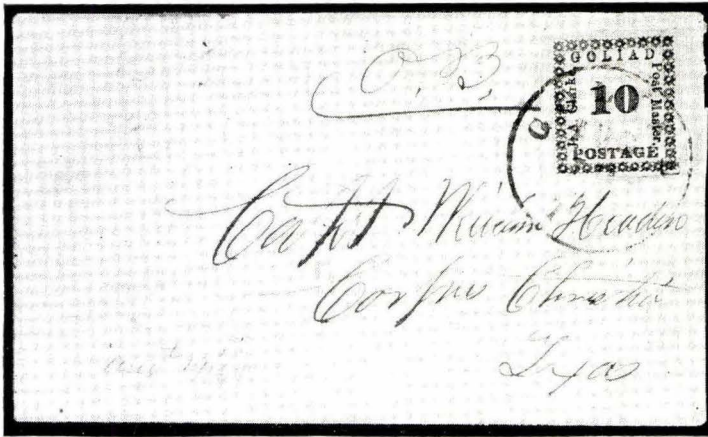 O.B.
GOLIAD
J.A. Clarke
10
Post Master
POSTAGE
G
Capt William Headen
Corpus Christi
Texas